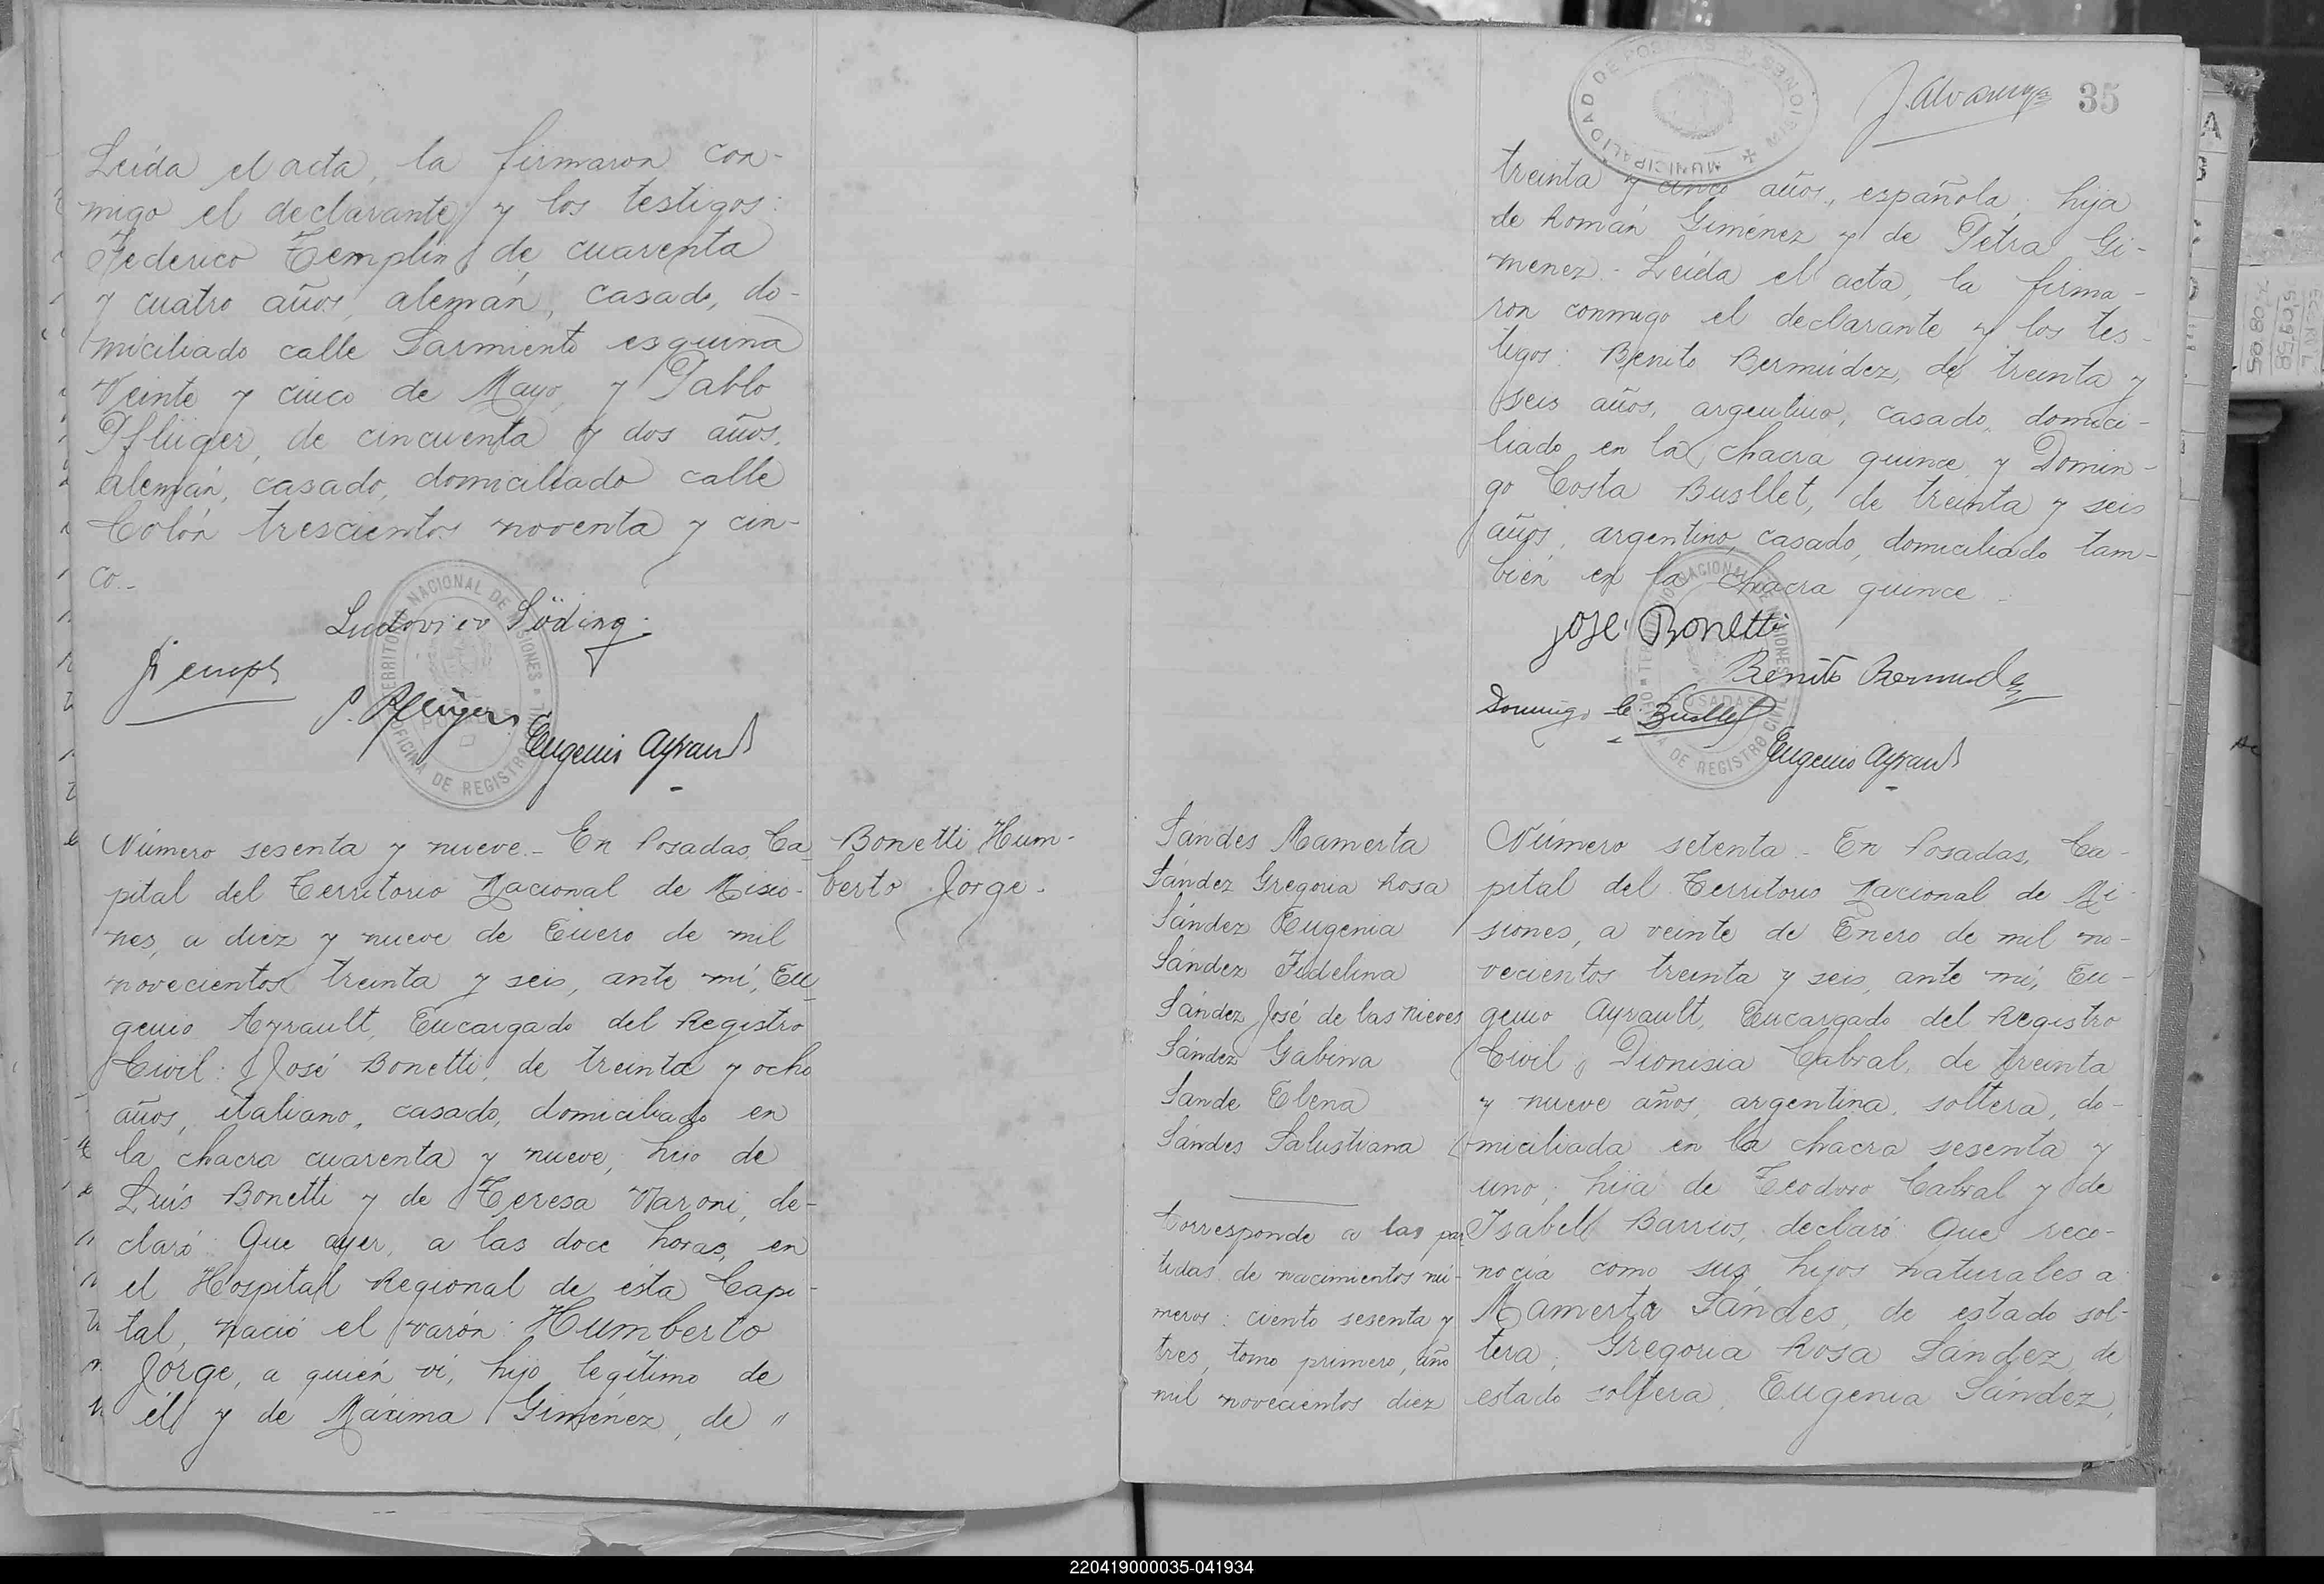 Leída el acta, la firmaron con-
migo el declarante y los testigos:
Federico Templin, de cuarenta
y cuatro años, alemán, casado, do-
miciliado calle Sarmiento esquina
Veinte y cinco de Mayo, y Pablo
Pflüger, de cincuenta y dos años,
alemán, casado, domiciliado calle
Colón trescientos noventa y cin-
co.-
Ludovico Söding
P. Pflüger
Eugenio Ayrault
TERRITORIO NACIONAL DE MISIONES
OFICINA DE REGISTRO CIVIL
Número sesenta y nueve.- En Posadas, Ca-
pital del Territorio Nacional de Misio-
nes, a diez y nueve de Enero de mil
novecientos treinta y seis, ante mí, Eu-
genio Ayrault, Encargado del Registro
Civil: José Bonetti, de treinta y ocho
años, italiano, casado, domiciliado en
la chacra cuarenta y nueve, hijo de
Luis Bonetti y de Teresa Varoni, de-
claró: Que ayer, a las doce horas, en
el Hospital Regional de ésta Capi-
tal, nació el varón: Humberto
Jorge, a quién ví, hijo legítimo de
él y de Máxima Giménez, de "
Bonetti Hum-
berto Jorge.-
MUNICIPALIDAD DE POSADAS
MISIONES
35
treinta y cinco años, española, hija
de Román Giménez y de Petra Gi-
menez.- Leída el acta, la firma-
ron conmigo el declarante y los tes-
tigos: Benito Bermúdez, de treinta y
seis años, argentino, casado, domici-
liado en la chacra quince y Domin-
go Costa Busllet, de treinta y seis
años, argentino, casado, domiciliado tam-
bién en la chacra quince.-
José Bonetti
Benito Bermudez
Domingo C. Busllet
Eugenio Ayrault
TERRITORIO NACIONAL DE MISIONES
POSADAS
OFICINA DE REGISTRO CIVIL
Sandes Mamerta
Sández Gregoria Rosa
Sández Eugenia
Sández Fidelina
Sández José de las Nieves
Sández Gabina
Sande Elena
Sándes Salustiana
Corresponde a las par-
tidas de nacimientos nú-
meros: ciento sesenta y
tres, tomo primero, año
mil novecientos diez
Número setenta.- En Posadas, Ca-
pital del Territorio Nacional de Mi-
siones, a veinte de Enero de mil no-
vecientos treinta y seis, ante mí, Eu-
genio Ayrault, Encargado del Registro
Civil, Dionisia Cabral, de treinta
y nueve años, argentina, soltera, do-
miciliada en la chacra sesenta y
uno, hija de Teodoro Cabral y de
Isabel Barrios, declaró: Que reco-
nocía como sus hijos naturales a
Mamerta Sándes, de estado sol-
tera; Gregoria Rosa Sández, de
estado soltera, Eugenia Sández,
220419000035-041934